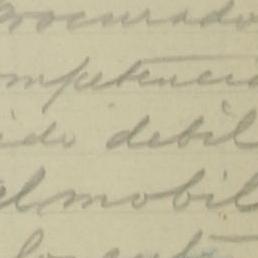 Procurado
mpetencia
ido debil
el mobil